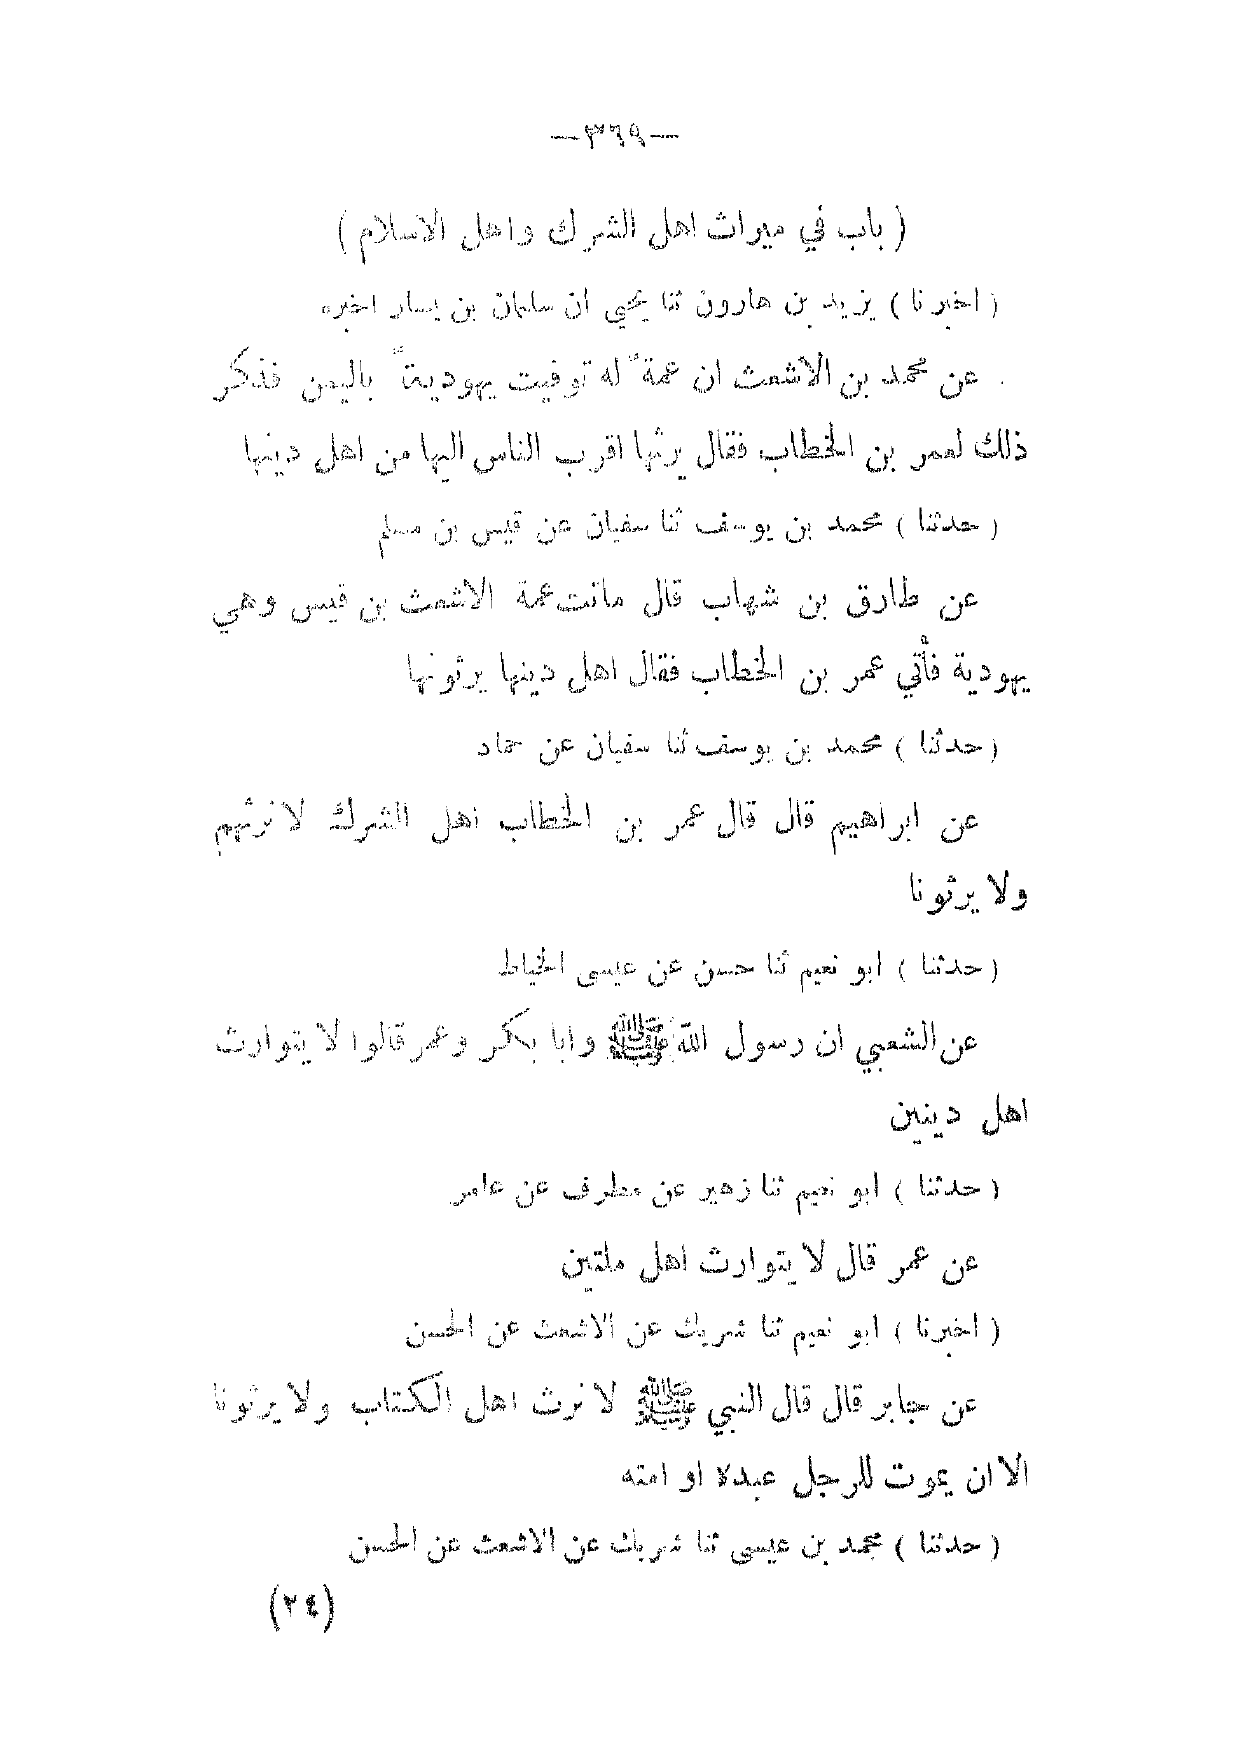 —٣٦٩—
( باب في ميراث اهل الشرك واهل الاسلام )
( اخبرنا ) يزيد بن هارون ثنا يحيى ان سليمان بن يسار اخبره
عن محمد بن الاشعث ان عمةً له توفيت يهوديةً باليمن فذكر
ذلك لعمر بن الخطاب فقال يرثها اقرب الناس اليها من اهل دينها
( حدثنا ) محمد بن يوسف ثنا سفيان عن قيس بن مسلم
عن طارق بن شهاب قال ماتت عمة الاشعث بن قيس وهي
يهودية فأتي عمر بن الخطاب فقال اهل دينها يرثونها
( حدثنا ) محمد بن يوسف ثنا سفيان عن حماد
عن ابراهيم قال قال عمر بن الخطاب اهل الشرك لا نرثهم
ولا يرثونا
( حدثنا ) ابو نعيم ثنا حسن عن عيسى الخياط
عن الشعبي ان رسول الله ﷺ وابا بكر وعمر قالوا لا يتوارث
اهل دينين
( حدثنا ) ابو نعيم ثنا زهير عن مطرف عن عامر
عن عمر قال لا يتوارث اهل ملتين
( اخبرنا ) ابو نعيم ثنا شريك عن الاشعث عن الحسن
عن جابر قال قال النبي ﷺ لا نرث اهل الكتاب ولا يرثونا
الا ان يموت للرجل عبده او امته
( حدثنا ) محمد بن عيسى ثنا شريك عن الاشعث عن الحسن
(٢٤)